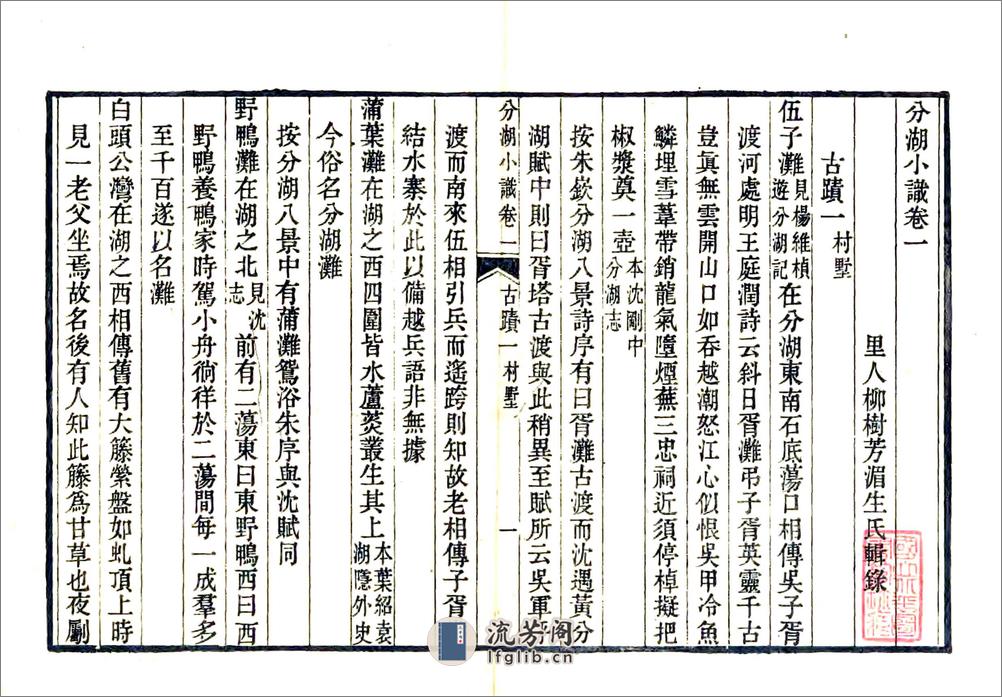 分湖小識卷一
里人柳樹芳湄生氏輯錄
古蹟一 村墅
伍子灘見楊維楨遊分湖記在分湖東南石底蕩口相傳吳子胥
渡河處明王庭潤詩云斜日胥灘弔子胥英靈千古
豈眞無雲開山口如吞越潮怒江心似恨吳甲冷魚
鱗埋雪葦帶銷龍氣墮煙蕪三忠祠近須停棹擬把
椒漿奠一壺本沈剛中分湖志
按朱嶔分湖八景詩序有曰胥灘古渡而沈遇黃分
湖賦中則曰胥塔古渡與此稍異至賦所云吳軍
分湖小識卷一 古蹟一 村墅 一
渡而南來伍相引兵而遙跨則知故老相傳子胥
結水寨於此以備越兵語非無據
蒲葉灘在湖之西四圍皆水蘆葵叢生其上本葉紹袁湖隱外史
今俗名分湖灘
按分湖八景中有蒲灘鴛浴朱序與沈賦同
野鴨灘在湖之北見沈志前有二蕩東曰東野鴨西曰西
野鴨養鴨家時駕小舟徜徉於二蕩間每一成羣多
至千百遂以名灘
白頭公灣在湖之西相傳舊有大籐縈盤如虬頂上時
見一老父坐焉故名後有人知此籐爲甘草也夜劚
流芳阁
lfglib.cn